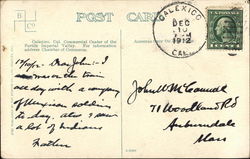 POST CARD
Calexico, Cal. Commercial Center of the
Fertile Imperial Valley. For information
address Chamber of Commerce.
CALEXICO
DEC
10
1912
CAL.
Dear John - I
was on the train
all day with a company
of Mexican soldiers
to day, also I saw
a lot of Indians
Father
John W McConnell
71 Woodland Rd
Auburndale
Mass